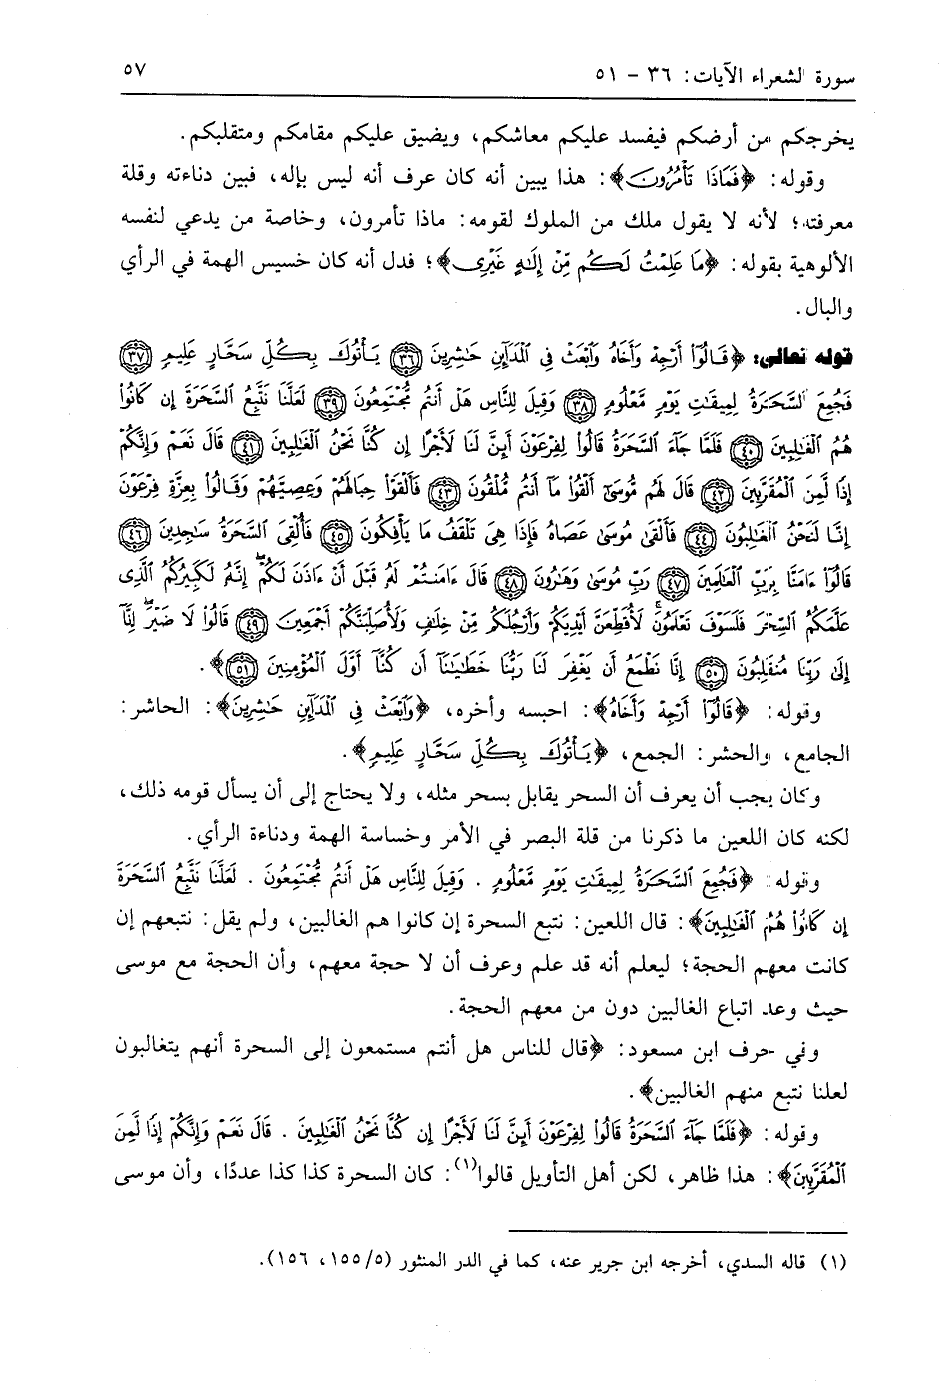 سورة الشعراء الآيات: ٣٦ - ٥١ ٥٧
يخرجكم من أرضكم فيفسد عليكم معاشكم، ويضيق عليكم مقامكم ومتقلبكم.
وقوله: ﴿فَمَاذَا تَأْمُرُونَ﴾: هذا يبين أنه كان عرف أنه ليس بإله، فبين دناءته وقلة
معرفته؛ لأنه لا يقول ملك من الملوك لقومه: ماذا تأمرون، وخاصة من يدعي لنفسه
الألوهية بقوله: ﴿مَا عَلِمْتُ لَكُم مِّنْ إِلَٰهٍ غَيْرِى﴾؛ فدل أنه كان خسيس الهمة في الرأي
والبال.
قوله تعالى: ﴿قَالُوٓا۟ أَرْجِهْ وَأَخَاهُ وَٱبْعَثْ فِى ٱلْمَدَآئِنِ حَٰشِرِينَ ﴿٣٦﴾ يَأْتُوكَ بِكُلِّ سَحَّارٍ عَلِيمٍ ﴿٣٧﴾
فَجُمِعَ ٱلسَّحَرَةُ لِمِيقَٰتِ يَوْمٍ مَّعْلُومٍ ﴿٣٨﴾ وَقِيلَ لِلنَّاسِ هَلْ أَنتُم مُّجْتَمِعُونَ ﴿٣٩﴾ لَعَلَّنَا نَتَّبِعُ ٱلسَّحَرَةَ إِن كَانُوا۟
هُمُ ٱلْغَٰلِبِينَ ﴿٤٠﴾ فَلَمَّا جَآءَ ٱلسَّحَرَةُ قَالُوا۟ لِفِرْعَوْنَ أَئِنَّ لَنَا لَأَجْرًا إِن كُنَّا نَحْنُ ٱلْغَٰلِبِينَ ﴿٤١﴾ قَالَ نَعَمْ وَإِنَّكُمْ
إِذًا لَّمِنَ ٱلْمُقَرَّبِينَ ﴿٤٢﴾ قَالَ لَهُم مُّوسَىٰٓ أَلْقُوا۟ مَآ أَنتُم مُّلْقُونَ ﴿٤٣﴾ فَأَلْقَوْا۟ حِبَالَهُمْ وَعِصِيَّهُمْ وَقَالُوا۟ بِعِزَّةِ فِرْعَوْنَ
إِنَّا لَنَحْنُ ٱلْغَٰلِبُونَ ﴿٤٤﴾ فَأَلْقَىٰ مُوسَىٰ عَصَاهُ فَإِذَا هِىَ تَلْقَفُ مَا يَأْفِكُونَ ﴿٤٥﴾ فَأُلْقِىَ ٱلسَّحَرَةُ سَٰجِدِينَ ﴿٤٦﴾
قَالُوٓا۟ ءَامَنَّا بِرَبِّ ٱلْعَٰلَمِينَ ﴿٤٧﴾ رَبِّ مُوسَىٰ وَهَٰرُونَ ﴿٤٨﴾ قَالَ ءَامَنتُمْ لَهُۥ قَبْلَ أَنْ ءَاذَنَ لَكُمْ ۖ إِنَّهُۥ لَكَبِيرُكُمُ ٱلَّذِى
عَلَّمَكُمُ ٱلسِّحْرَ فَلَسَوْفَ تَعْلَمُونَ ۚ لَأُقَطِّعَنَّ أَيْدِيَكُمْ وَأَرْجُلَكُم مِّنْ خِلَٰفٍ وَلَأُصَلِّبَنَّكُمْ أَجْمَعِينَ ﴿٤٩﴾ قَالُوا۟ لَا ضَيْرَ ۖ إِنَّآ
إِلَىٰ رَبِّنَا مُنقَلِبُونَ ﴿٥٠﴾ إِنَّا نَطْمَعُ أَن يَغْفِرَ لَنَا رَبُّنَا خَطَٰيَٰنَآ أَن كُنَّآ أَوَّلَ ٱلْمُؤْمِنِينَ ﴿٥١﴾﴾.
وقوله: ﴿قَالُوٓا۟ أَرْجِهْ وَأَخَاهُ﴾: احبسه وأخره، ﴿وَٱبْعَثْ فِى ٱلْمَدَآئِنِ حَٰشِرِينَ﴾: الحاشر:
الجامع، والحشر: الجمع، ﴿يَأْتُوكَ بِكُلِّ سَحَّارٍ عَلِيمٍ﴾.
وكان يجب أن يعرف أن السحر يقابل بسحر مثله، ولا يحتاج إلى أن يسأل قومه ذلك،
لكنه كان اللعين ما ذكرنا من قلة البصر في الأمر وخساسة الهمة ودناءة الرأي.
وقوله: ﴿فَجُمِعَ ٱلسَّحَرَةُ لِمِيقَٰتِ يَوْمٍ مَّعْلُومٍ . وَقِيلَ لِلنَّاسِ هَلْ أَنتُم مُّجْتَمِعُونَ . لَعَلَّنَا نَتَّبِعُ ٱلسَّحَرَةَ
إِن كَانُوا۟ هُمُ ٱلْغَٰلِبِينَ﴾: قال اللعين: نتبع السحرة إن كانوا هم الغالبين، ولم يقل: نتبعهم إن
كانت معهم الحجة؛ ليعلم أنه قد علم وعرف أن لا حجة معهم، وأن الحجة مع موسى
حيث وعد اتباع الغالبين دون من معهم الحجة.
وفي حرف ابن مسعود: ﴿قال للناس هل أنتم مستمعون إلى السحرة أنهم يتغالبون
لعلنا نتبع منهم الغالبين﴾.
وقوله: ﴿فَلَمَّا جَآءَ ٱلسَّحَرَةُ قَالُوا۟ لِفِرْعَوْنَ أَئِنَّ لَنَا لَأَجْرًا إِن كُنَّا نَحْنُ ٱلْغَٰلِبِينَ . قَالَ نَعَمْ وَإِنَّكُمْ إِذًا لَّمِنَ
ٱلْمُقَرَّبِينَ﴾: هذا ظاهر، لكن أهل التأويل قالوا(١): كان السحرة كذا كذا عددًا، وأن موسى
(١) قاله السدي، أخرجه ابن جرير عنه، كما في الدر المنثور (٥/١٥٥، ١٥٦).